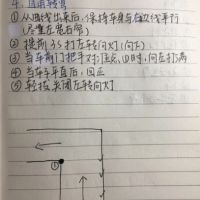 4、直角转弯
① 从曲线出来后,保持车身与右边线平行
(尽量左宽右窄)
② 提前3S打左转向灯(向左)
③ 当车前门把手对顶点,同时,向左打满
④ 当车身平直后,回正
⑤ 轻拨,关闭左转向灯
①